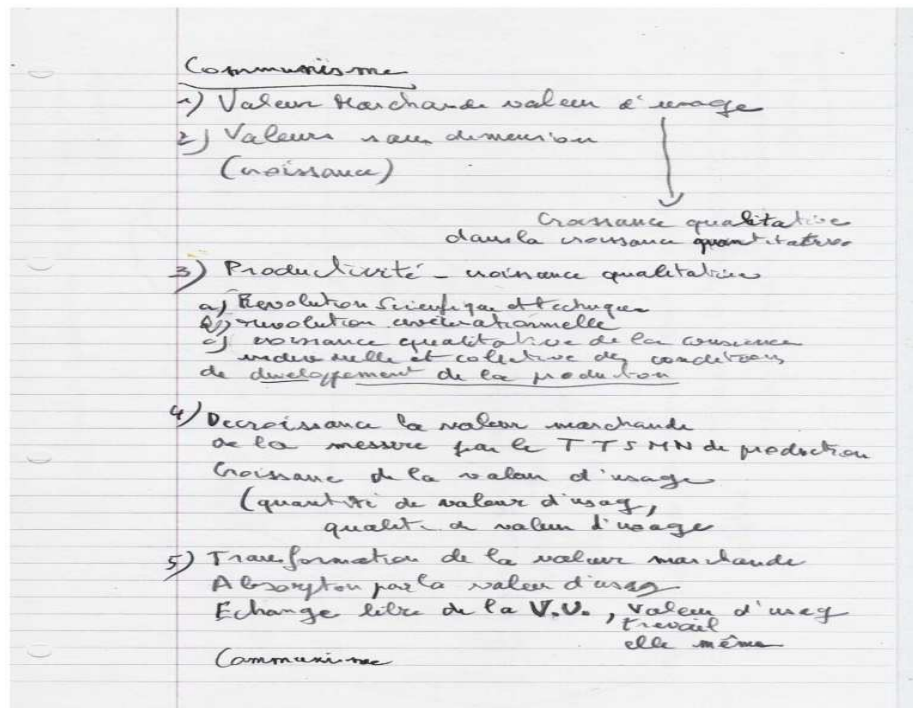 Communisme
1) Valeur Marchande valeur d'usage
2) Valeurs sans dimension
(croissance)
Croissance qualitative
dans la croissance quantitative
3) Productivité - croissance qualitative
a) Revolution Scientifique et technique
b) revolution
c) croissance qualitative de la conscience
et collective des conditions
de developpement de la production
4) Decroissance la valeur marchande
de la messure par le TTSMN de production
Croissance de la valeur d'usage
(quantité de valeur d'usag,
qualit. de valeur d'usage
5) Transformation de la valeur marchande
Absorption par la valeur d'usag
Echange libre de la V.U., Valeur d'usag
travail
elle même
Communisme